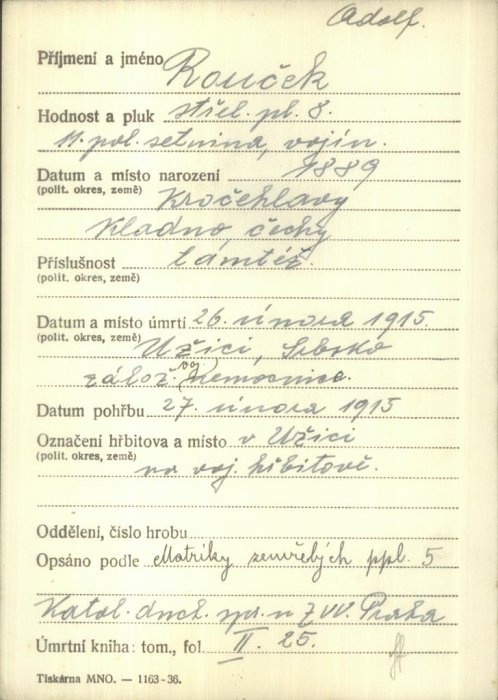 Adolf.
Příjmení a jméno Rouček
Hodnost a pluk střel. pl. 8.
11. pol. setnina, vojín.
Datum a místo narození 1889
(polit. okres, země) Kročehlavy
Kladno, Čechy
Příslušnost tamtéž.
(polit. okres, země)
Datum a místo úmrtí 26. února 1915.
(polit. okres, země) Užici, Srbsko
zálož. voj. nemocnice.
Datum pohřbu 27. února 1915
Označení hřbitova a místo v Užici
(polit. okres, země) na voj. hřbitově.
Oddělení, číslo hrobu
Opsáno podle Matriky zemřelých ppl. 5
Katol. duch. spr. u ZVV. Praha
Úmrtní kniha: tom., fol. II. 25.
Tiskárna MNO. — 1163-36.